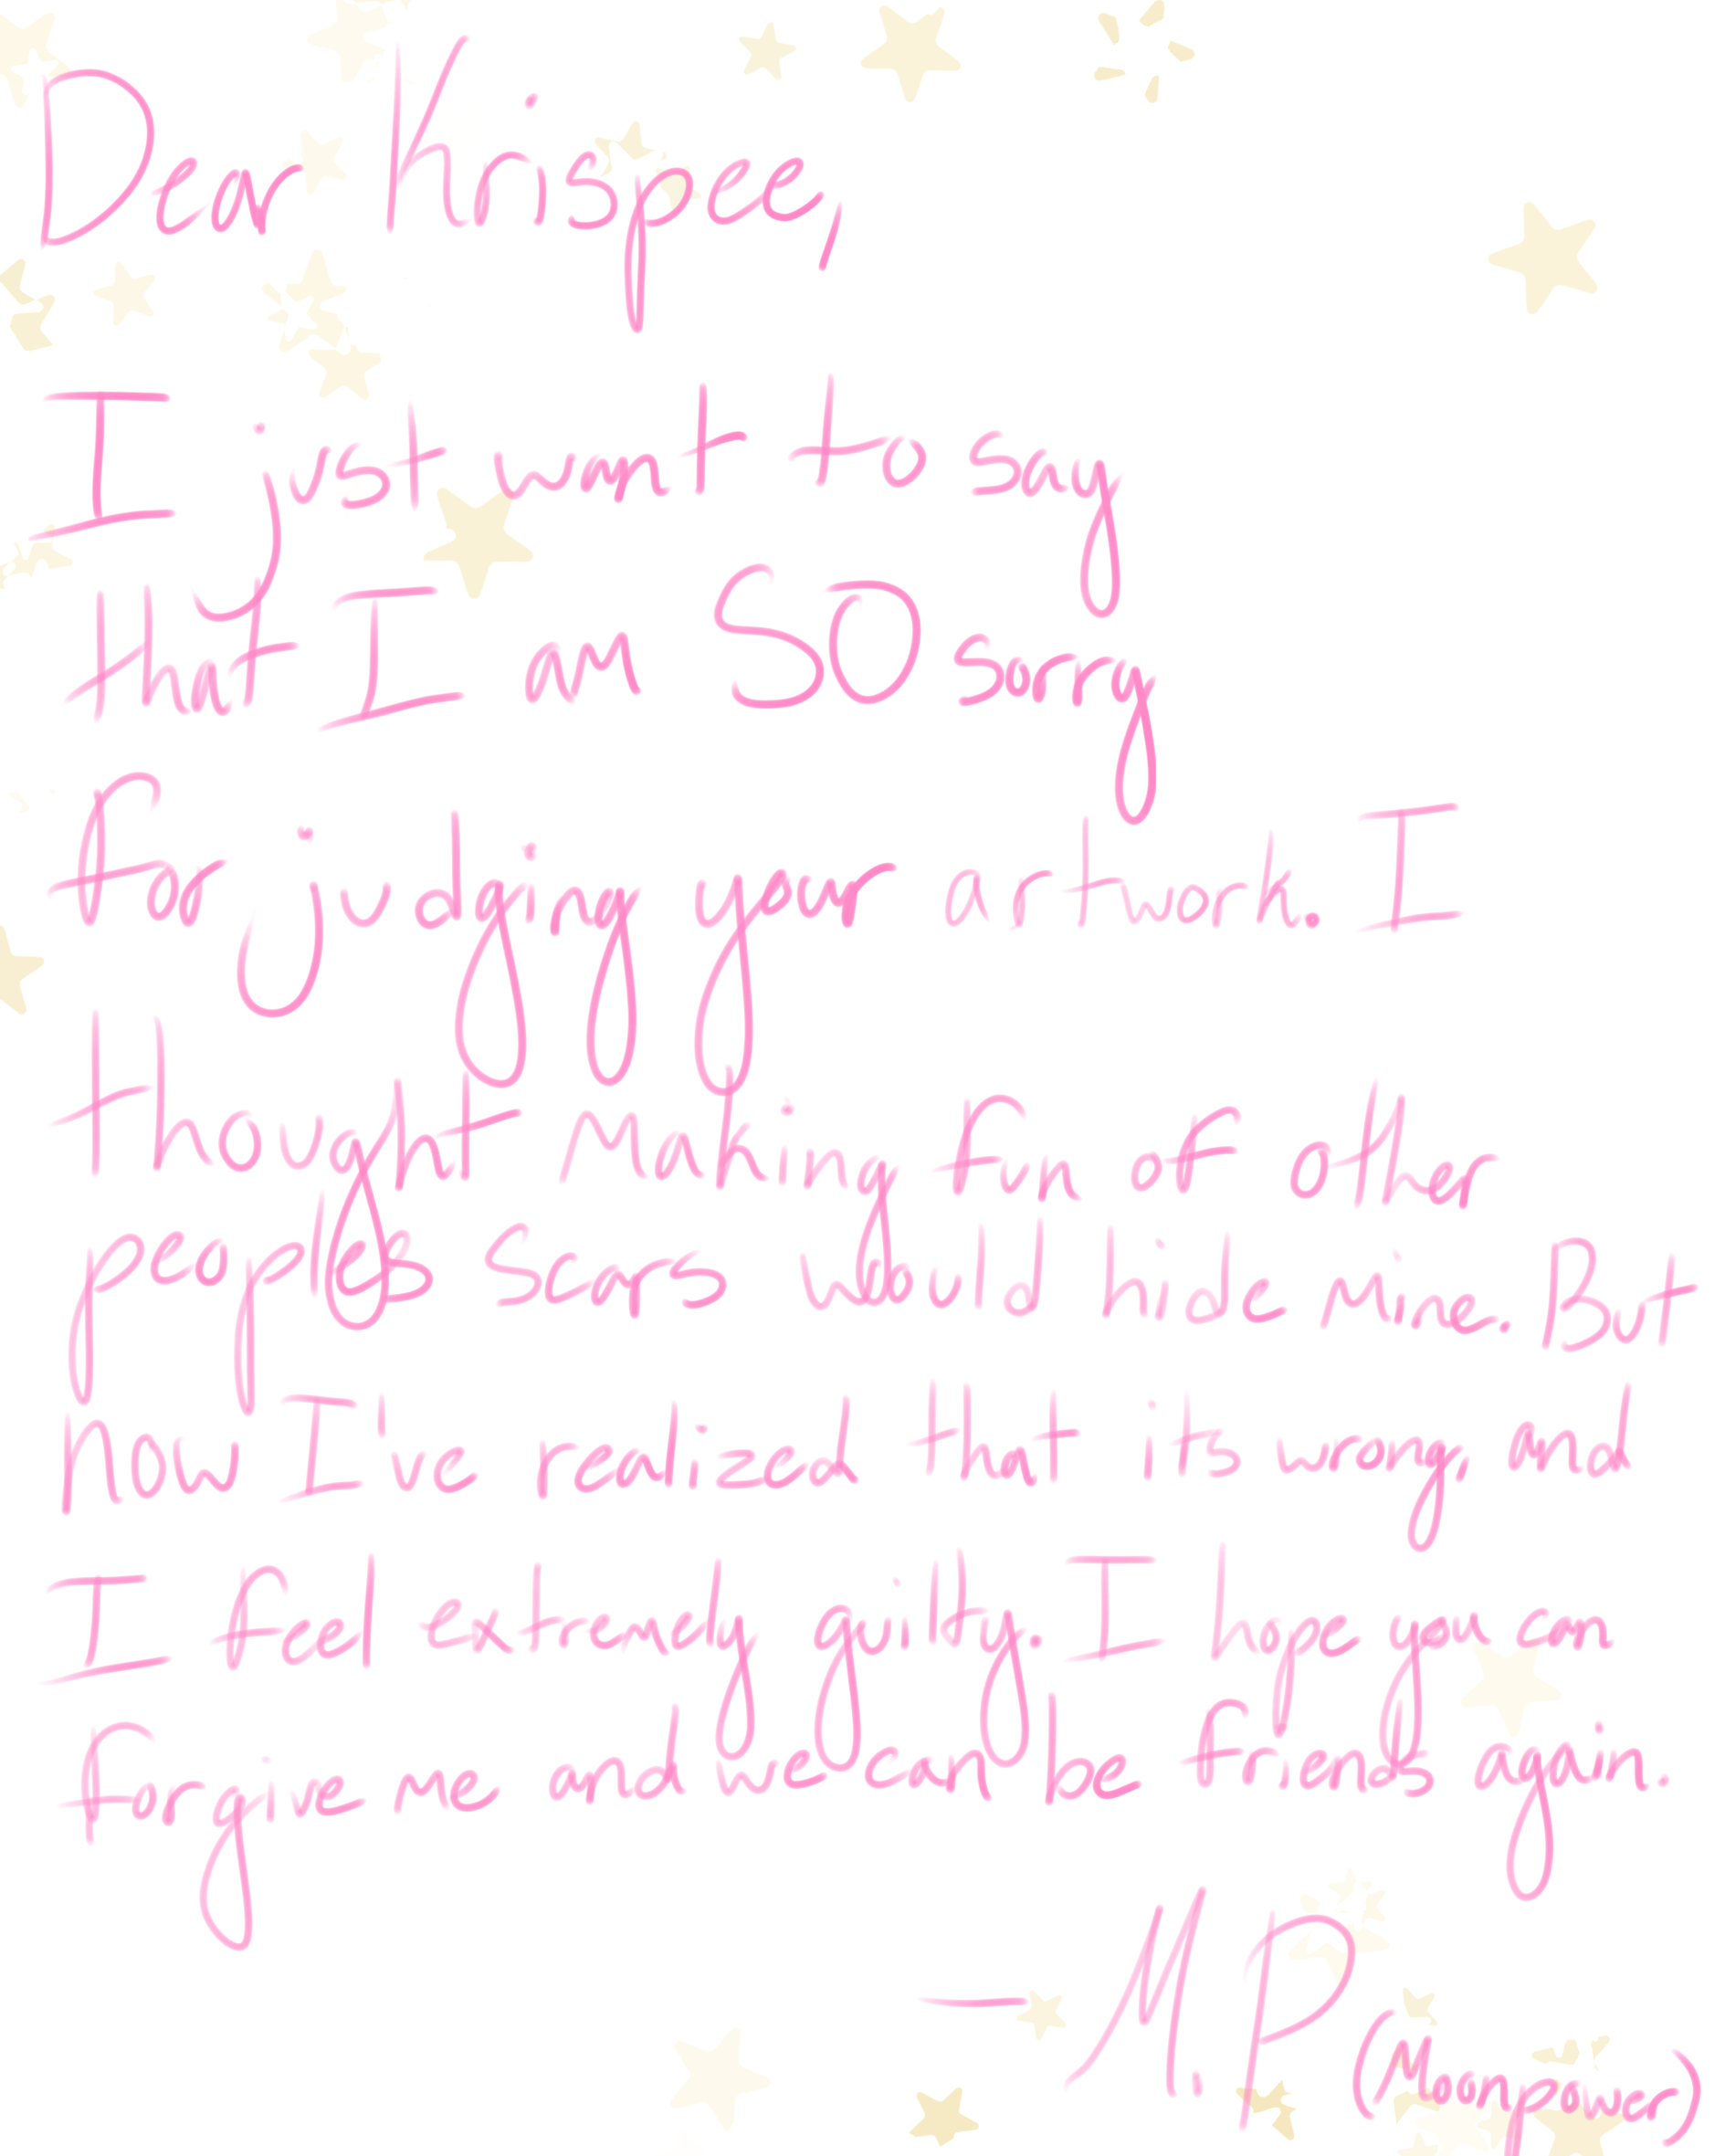 Dear Krispee,
I just want to say
that I am SO sorry
for judging your artwork. I
thought making fun of other
peoples scars would hide mine. But
now I've realized that its wrong, and
I feel extremely guilty. I hope you can
forgive me and we can be friends again.
- M.P
(Moonpower)